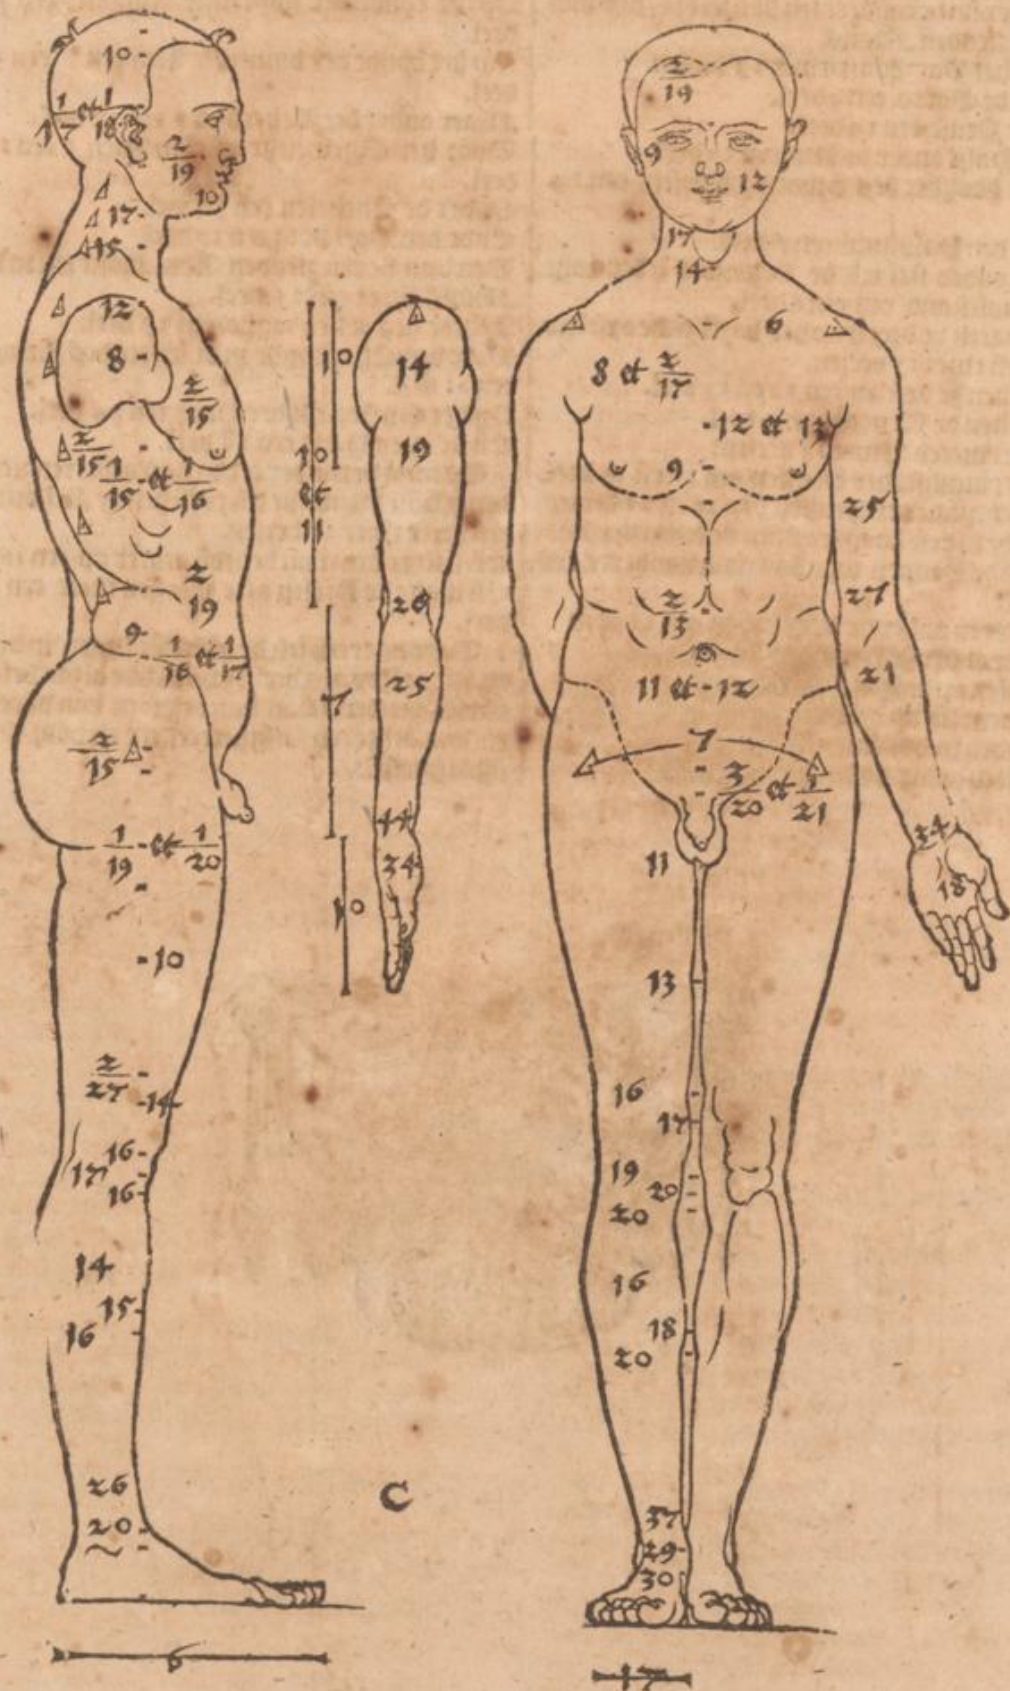 10
1/17 et 1/18
2/19
10
17
15
12
8
2/15
2/15
1/15 et 1/16
2/19
9
1/16 et 1/17
2/15
1/19 et 1/20
10
2/27
14
16
17
16
14
15
16
26
20
6
10
10
et
11
7
10
14
19
26
25
44
34
C
2/19
9
12
17
14
6
8 et 2/17
12 et 13
9
25
27
2/13
21
11 et 12
7
et 1/21
11
34
18
13
16
17
19
20
20
16
18
20
37
29
30
17